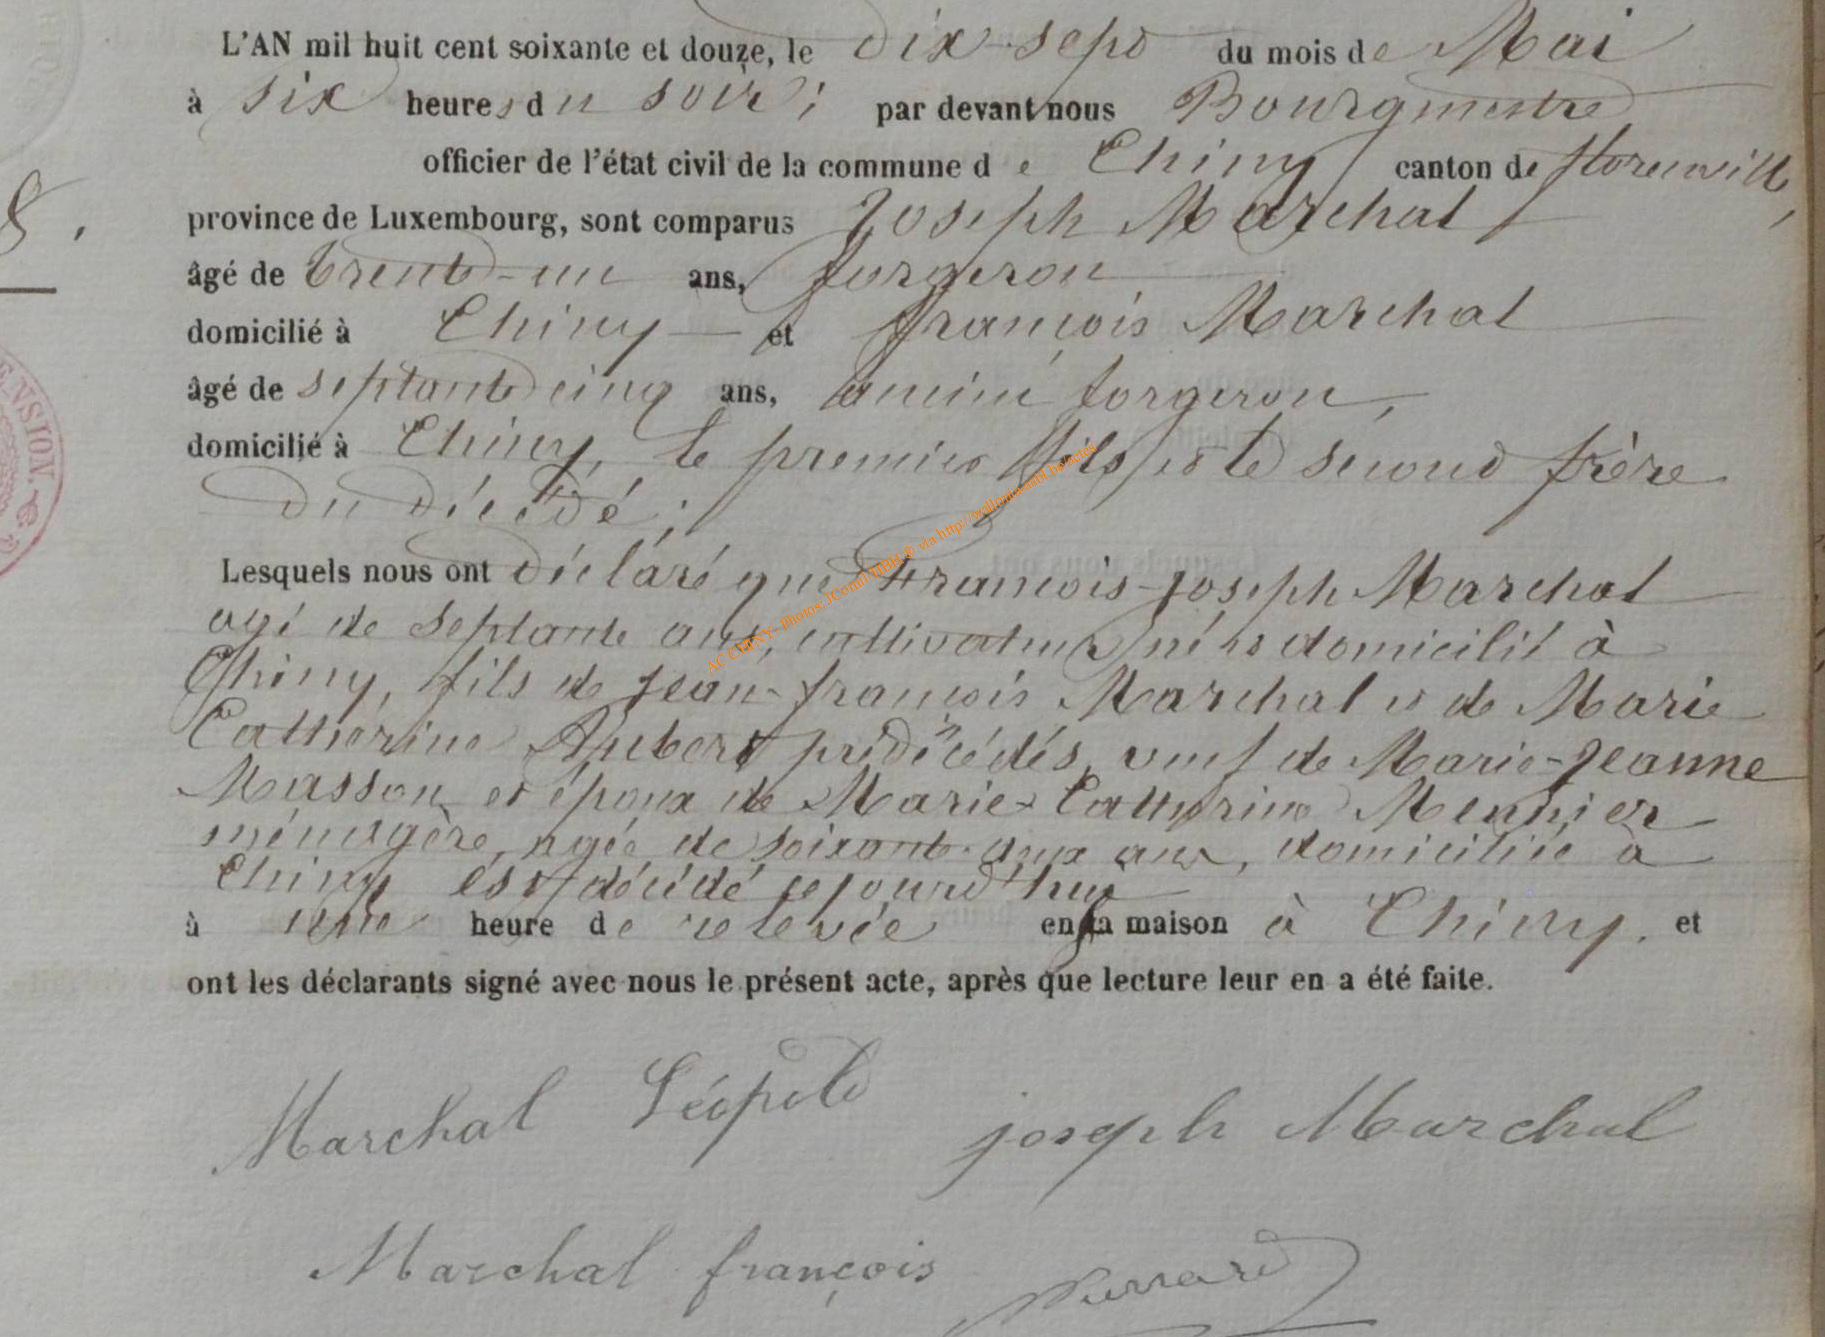 L'AN mil huit cent soixante et douze, le dix-sept du mois de Mai
à six heures du soir; par devant nous Bourgmestre
officier de l'état civil de la commune de Chiny canton de florenville,
province de Luxembourg, sont comparus Joseph Marchal
8.
âgé de trente-un ans, forgeron
domicilié à Chiny et françois Marchal
âgé de septante cinq ans, forgeron,
domicilié à Chiny, le premier fils et le second frère
du décédé;
ENSION.
Lesquels nous ont déclaré que François-Joseph Marchal
agé de septante ans, cultivateur, né et domicilié à
Chiny, fils de Jean-françois Marchal et de Marie
Catherine Aubert prédécédés, veuf de Marie-Jeanne
Masson et époux de Marie-Catherine Meunier
ménagère, agée de soixante-deux ans, domiciliée à
Chiny est décédé cejourd'hui
à une heure de relevée en sa maison à Chiny. et
ont les déclarants signé avec nous le présent acte, après que lecture leur en a été faite.
Marchal Léopold joseph Marchal
Marchal françois Pierrard
AC CHINY- Photos: via http://